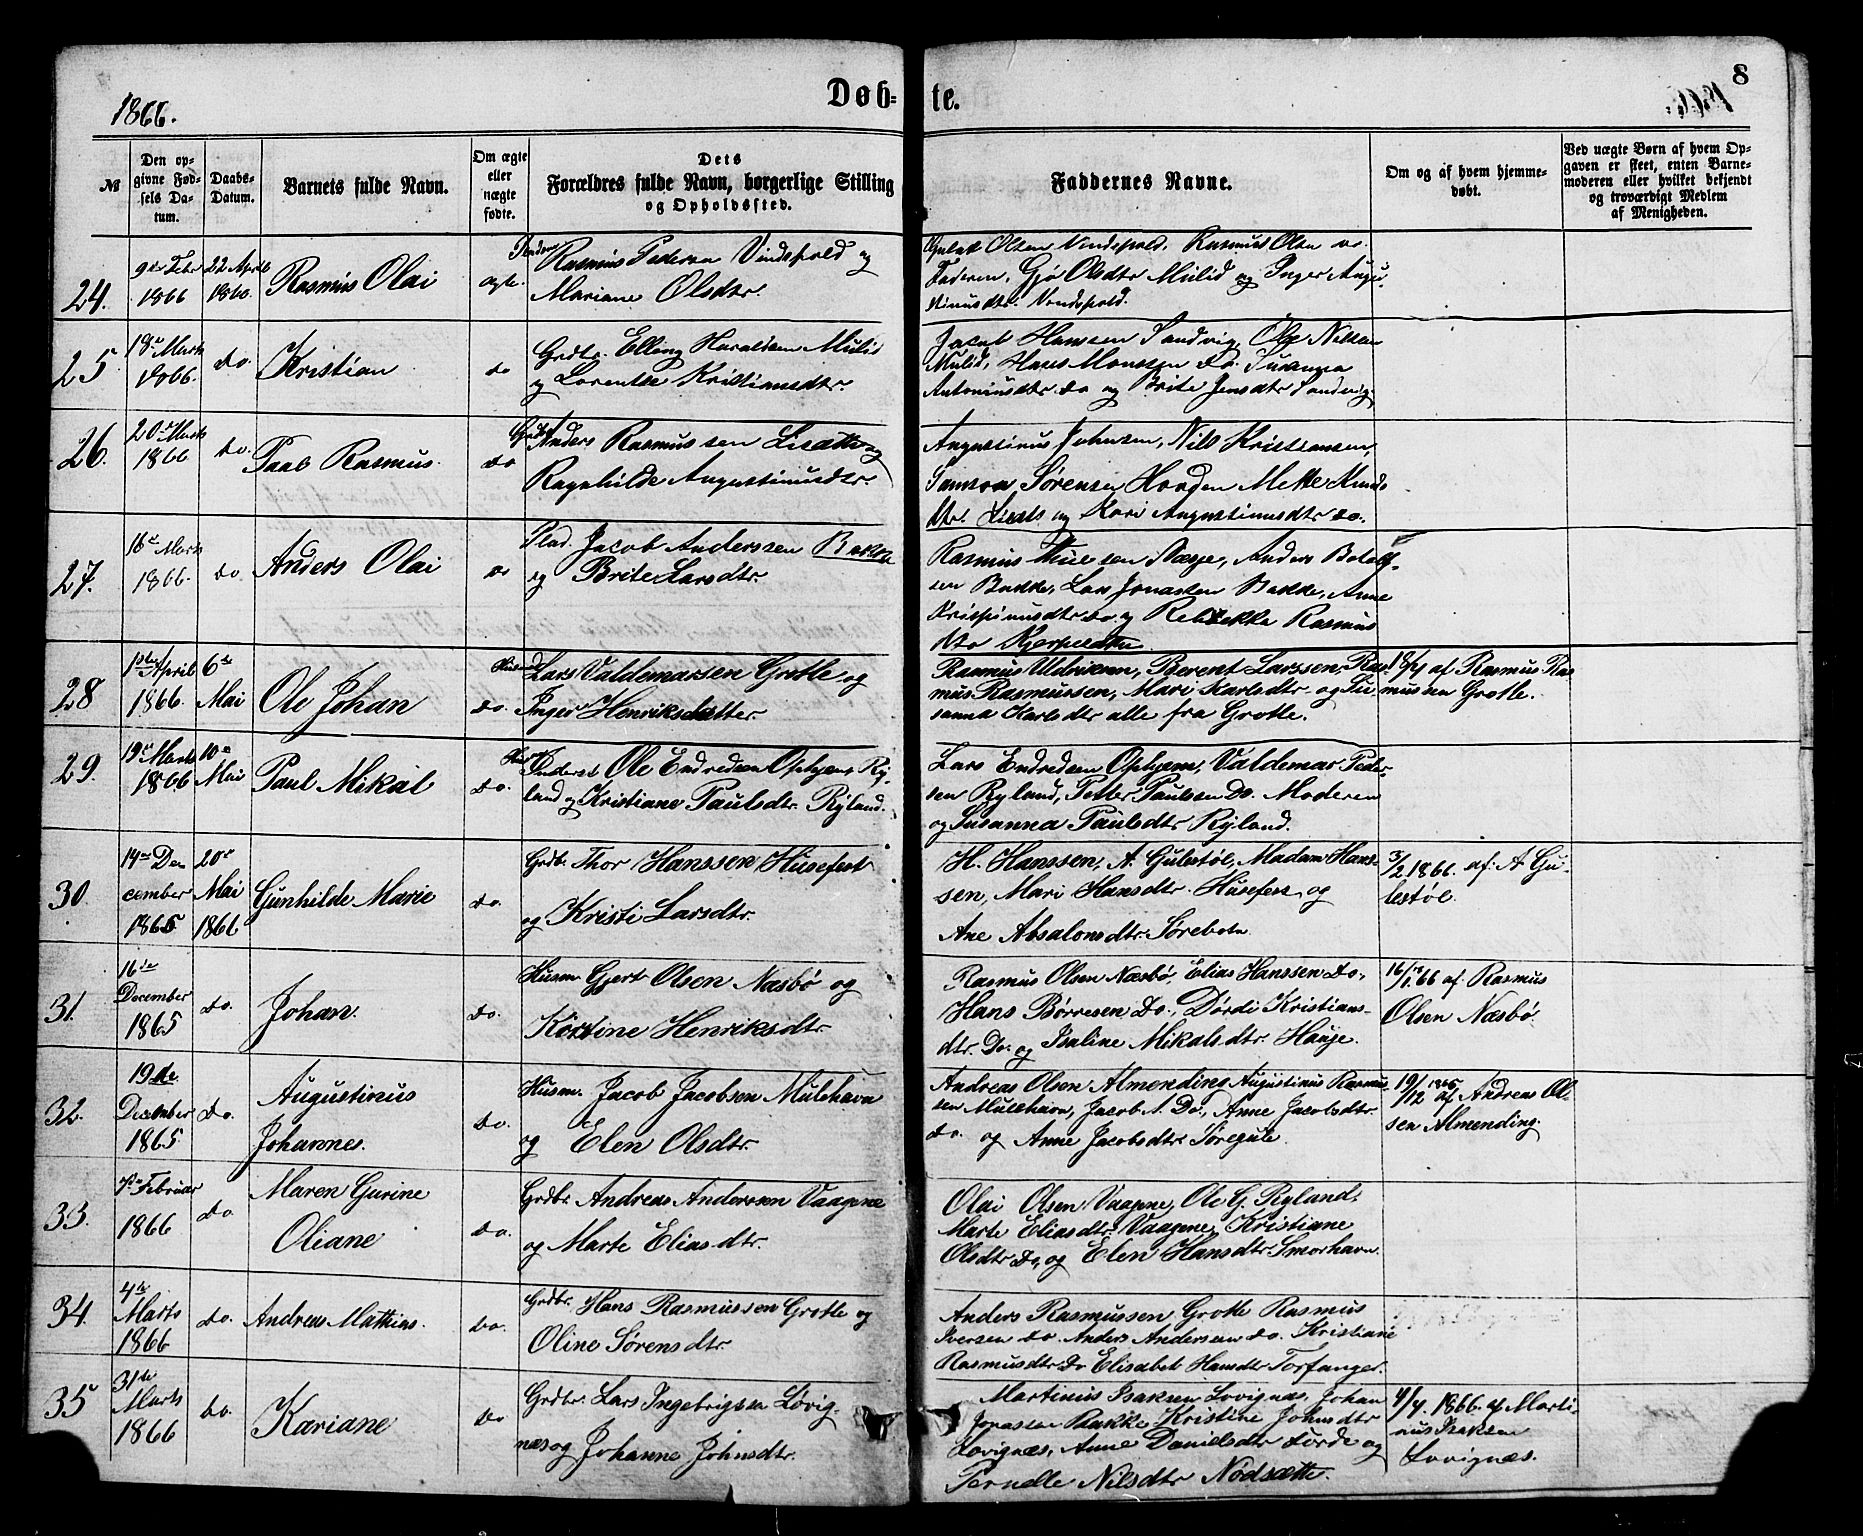 1866.
Døb-
te.
8
№
Den op-
givne Fød-
sels Da-
tum.
Daabs-
Datum.
Barnets fulde Navn.
Om ægte
eller
uægte
fødte.
Dets
Forældres fulde Navn, borgerlige Stilling
og Opholdssted.
Faddernes Navne.
Om og af hvem hjemme-
døbt.
Ved uægte Børn af hvem Op-
gaven er skeet, enten Barne-
moderen eller hvilket bekjendt
og troværdigt Medlem
af Menigheden.
24.
9de Febr
1866
22 April
1866.
Rasmus Olai
ægte.
Rasmus Pedersen Vindspold og
Mariane Olsdtr.
Olsen Vindspold, Rasmus Olsen do.
Faderen, Gjø Olsdtr Mulid og Inger Augu-
stinusdtr. Vindspold.
25.
Marts
1866.
do.
Kristian
do
Grdbr. Elling Haraldsen Mulid
og Lorentse Kristiansdtr.
Jacob Hanssen Sandvig, Ole Nilsen
Mulid, Hans Monssen do. Susanna
Antoniusdtr do og Brite Jensdtr Sandvig
26.
20de Marts
1866
do.
Paal Rasmus.
do
Grdbr. Anders Rasmussen Lisætte og
Ragnhilde Augustinusdtr.
Augustinus Johnsen, Nils Kristiansen,
Samson Sørensen Hovden Mette Knuds
dtr. og Kari Augustinusdtr do.
27.
16de Marts
1866.
do
Anders Olai
do
Jacob Anderssen Bakke
og Brite Larsdtr
Rasmus Anders Botolf-
sen Bakke, Lars Jonassen Bakke, Anne
Kristinusdtr do og Rebekka Rasmus
dtr
28
April
1866.
6te
Mai
Ole Johan
do.
Husmd Lars Valdemarsen Grotle og
Inger Henriksdatter.
Rasmus Uldriksen, Berent Larssen, Ras-
mus Rasmussen, Mari Karlsdtr og Su-
sanna Karlsdtr alle fra Grotle.
18/4 af Rasmus Ras
mussen Grotle.
29.
19de Marts
1866
10de
Mai
Paul Mikal
do.
Ole Endredsen Ophjem, Ry-
land og Kristiane Paulsdtr. Ryland.
Lars Endredsen Ophjem, Valdemar Peder-
sen Ryland, Petter Paulssen do. Moderen
og Susanna Paulsdtr Ryland.
30.
14de De
cember
1865
20de
Mai
1866
Gunhilde Marie
do.
Grdbr. Thor Hanssen Husefest
og Kristi Larsdtr.
H. Hanssen, A. Gulestøl, Madam Hans-
sen, Mari Hansdtr. Husefest og
Ane Absalonsdtr. Sørebotn
3/2 1866. af A Gu-
lestøl.
31.
16de
December
1865
do.
Johan.
do.
Husm. Gjert Olsen Næsbø og
Kirstine Henriksdtr
Rasmus Olsen Næsbø, Elias Hanssen do,
Hans Børresen do., Dørdi Kristians-
dtr. do. og Isaline Mikalsdtr. Hauge.
16/1.66 af Rasmus
Olsen Næsbø.
32.
19de
December
1865
do.
Augustinus
Johannes.
do.
Husm. Jacob Jacobsen Mulehavn
og Elen Olsdtr.
Andreas Olsen Almending, Augustinus Rasmus-
sen Mulehavn, Jacob A. do, Anne Jacobsdtr.
do. og Anne Jacobsdtr. Søregule.
19/12 1865 af Andreas Ol-
sen Almending.
33.
7de Februar
1866
do
Maren Gurine
Oliane
do.
Grdbr. Andreas Anderssen Vaagene
og Marte Eliasdtr.
Olai Olsen Vaagene, Ole G. Ryland,
Marte Eliasdtr. Vaagene, Kristiane
Olsdtr do, og Elen Hansdtr. Smørhavn.
34.
4de
Marts
1866
do.
Andreas Mathias.
do.
Grdbr. Hans Rasmussen Grotle og
Oline Sørensdtr.
Anders Rasmussen Grotle Rasmus
Iversen do. Anders Andersen do. Kristiane
Rasmusdtr do Elisabet Hansdtr Torfanger.
35
31te
Marts
1866
do.
Kariane
do
Grdbr. Lars Ingebrigtsen Løvig-
næs og Johanne Johnsdtr.
Martinus Isaksen Lovignæs, Johan
Jonassen Bakke, Kristine Johnsdtr
Lovignæs, Anne Danielsdtr Førde og
Pernelle Nilsdtr Nødsætte.
4/4. 1866. af Marti-
nus Isaksen
Lovignæs.